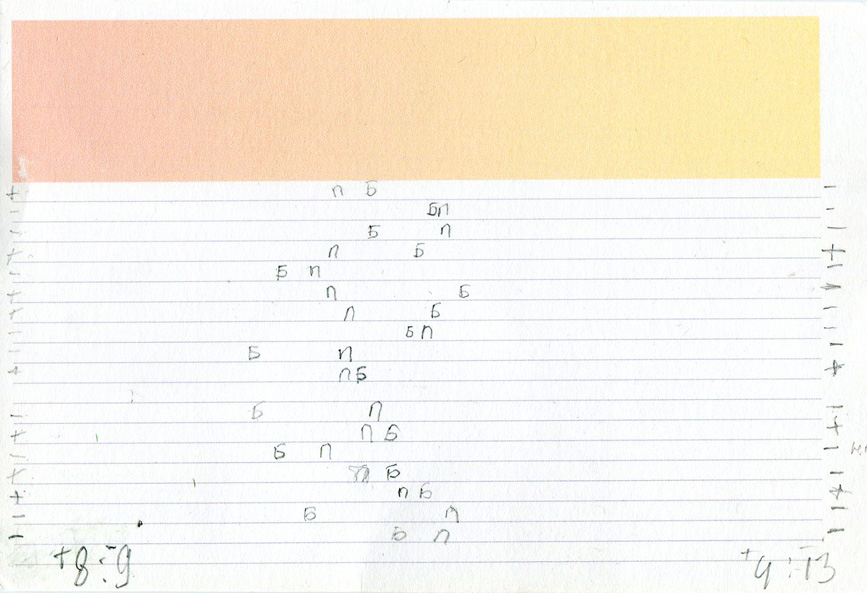 + П Б -
- БП -
- Б П -
+ П Б +
- Б П -
+ П Б +
+ П Б -
- Б П -
- Б П -
+ П Б +
- Б П -
+ П Б +
- Б П -
+ П Б -
+ П Б +
- Б П -
- Б П -
+8 : -9 +4 : -13